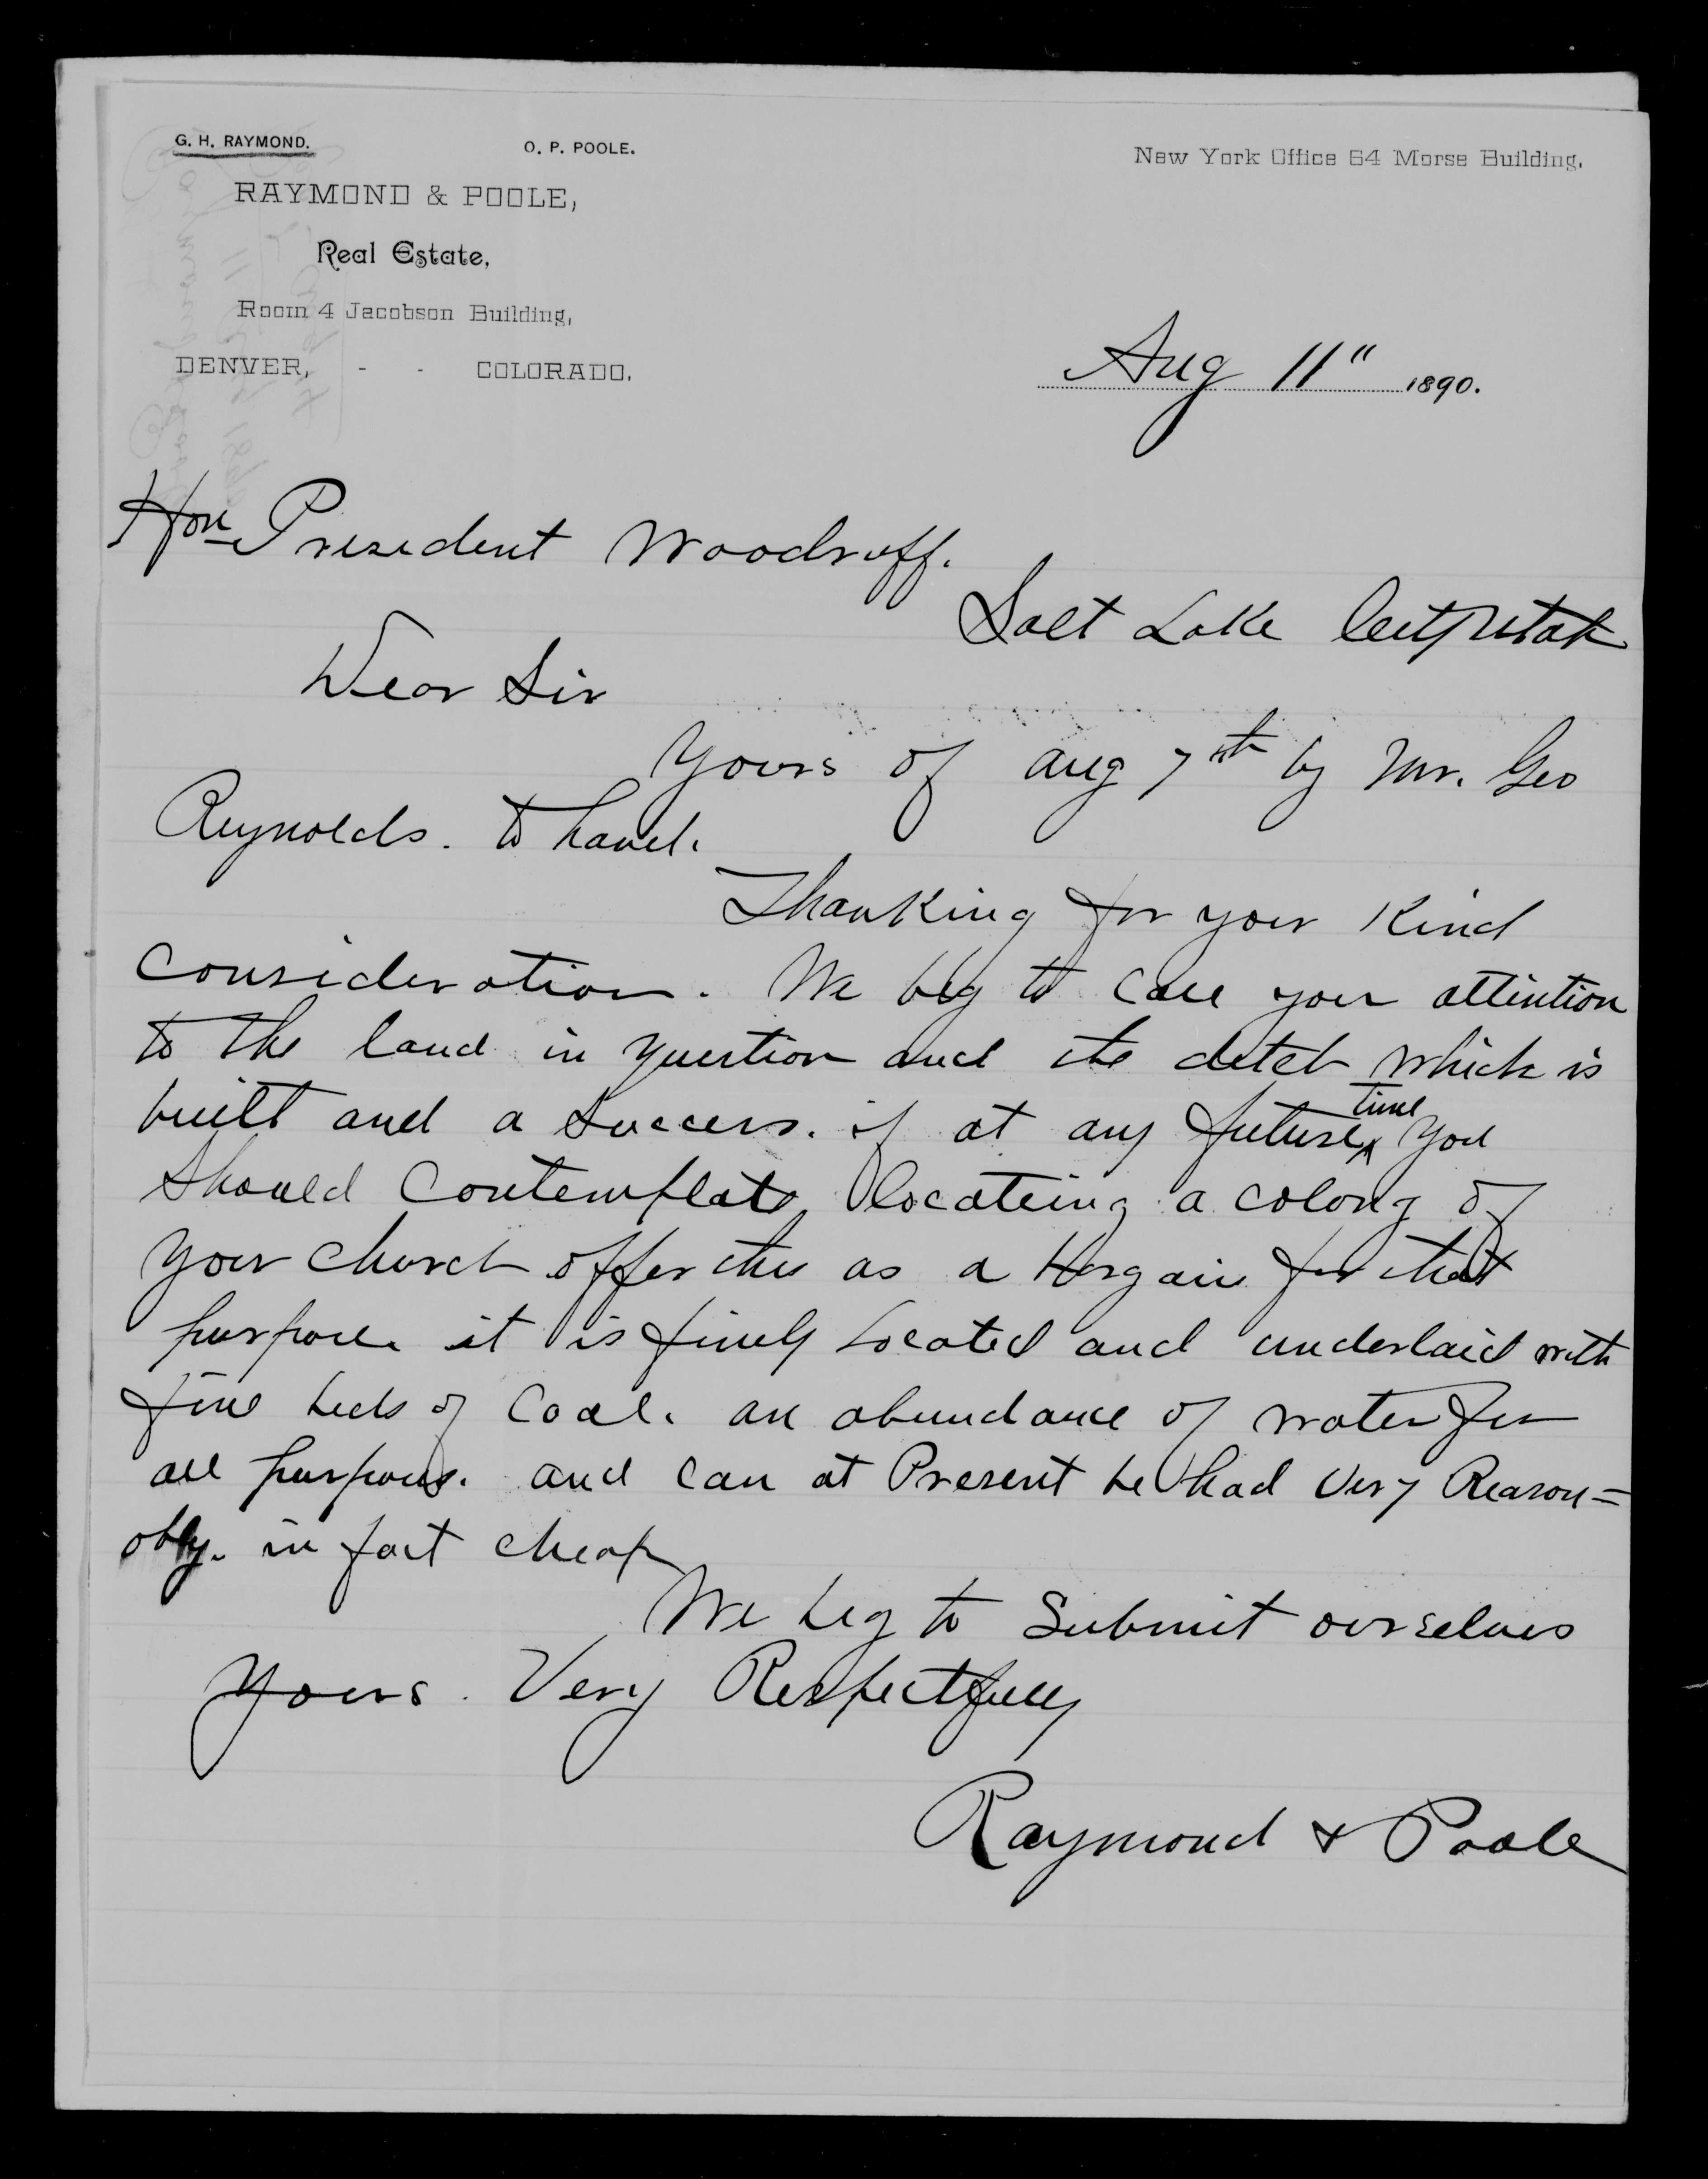 G. H. RAYMOND. O. P. POOLE.
New York Office 64 Morse Building.
RAYMOND & POOLE,
Real Estate,
Room 4 Jacobson Building,
DENVER, - - COLORADO.
Aug 11" 1890.
Hon President Woodruff.
Salt Lake City Utah
Dear Sir
Yours of Aug 7th by Mr. Geo
Reynolds. to hand.
Thanking for your Kind
Consideration. We beg to Call your attention
to the land in question and the ditch which is
built and a Success. if at any future time you
Should Contemplate locateing a colony of
your church offer this as a Bargain for that
purpose. it is finely Located and underlaid with
fine beds of Coal. an abundance of water for
all purposes. and Can at Present be had Very Reason=
ably. in fact cheap
We beg to Submit ourselves
Yours. Very Respectfully
Raymond & Poole